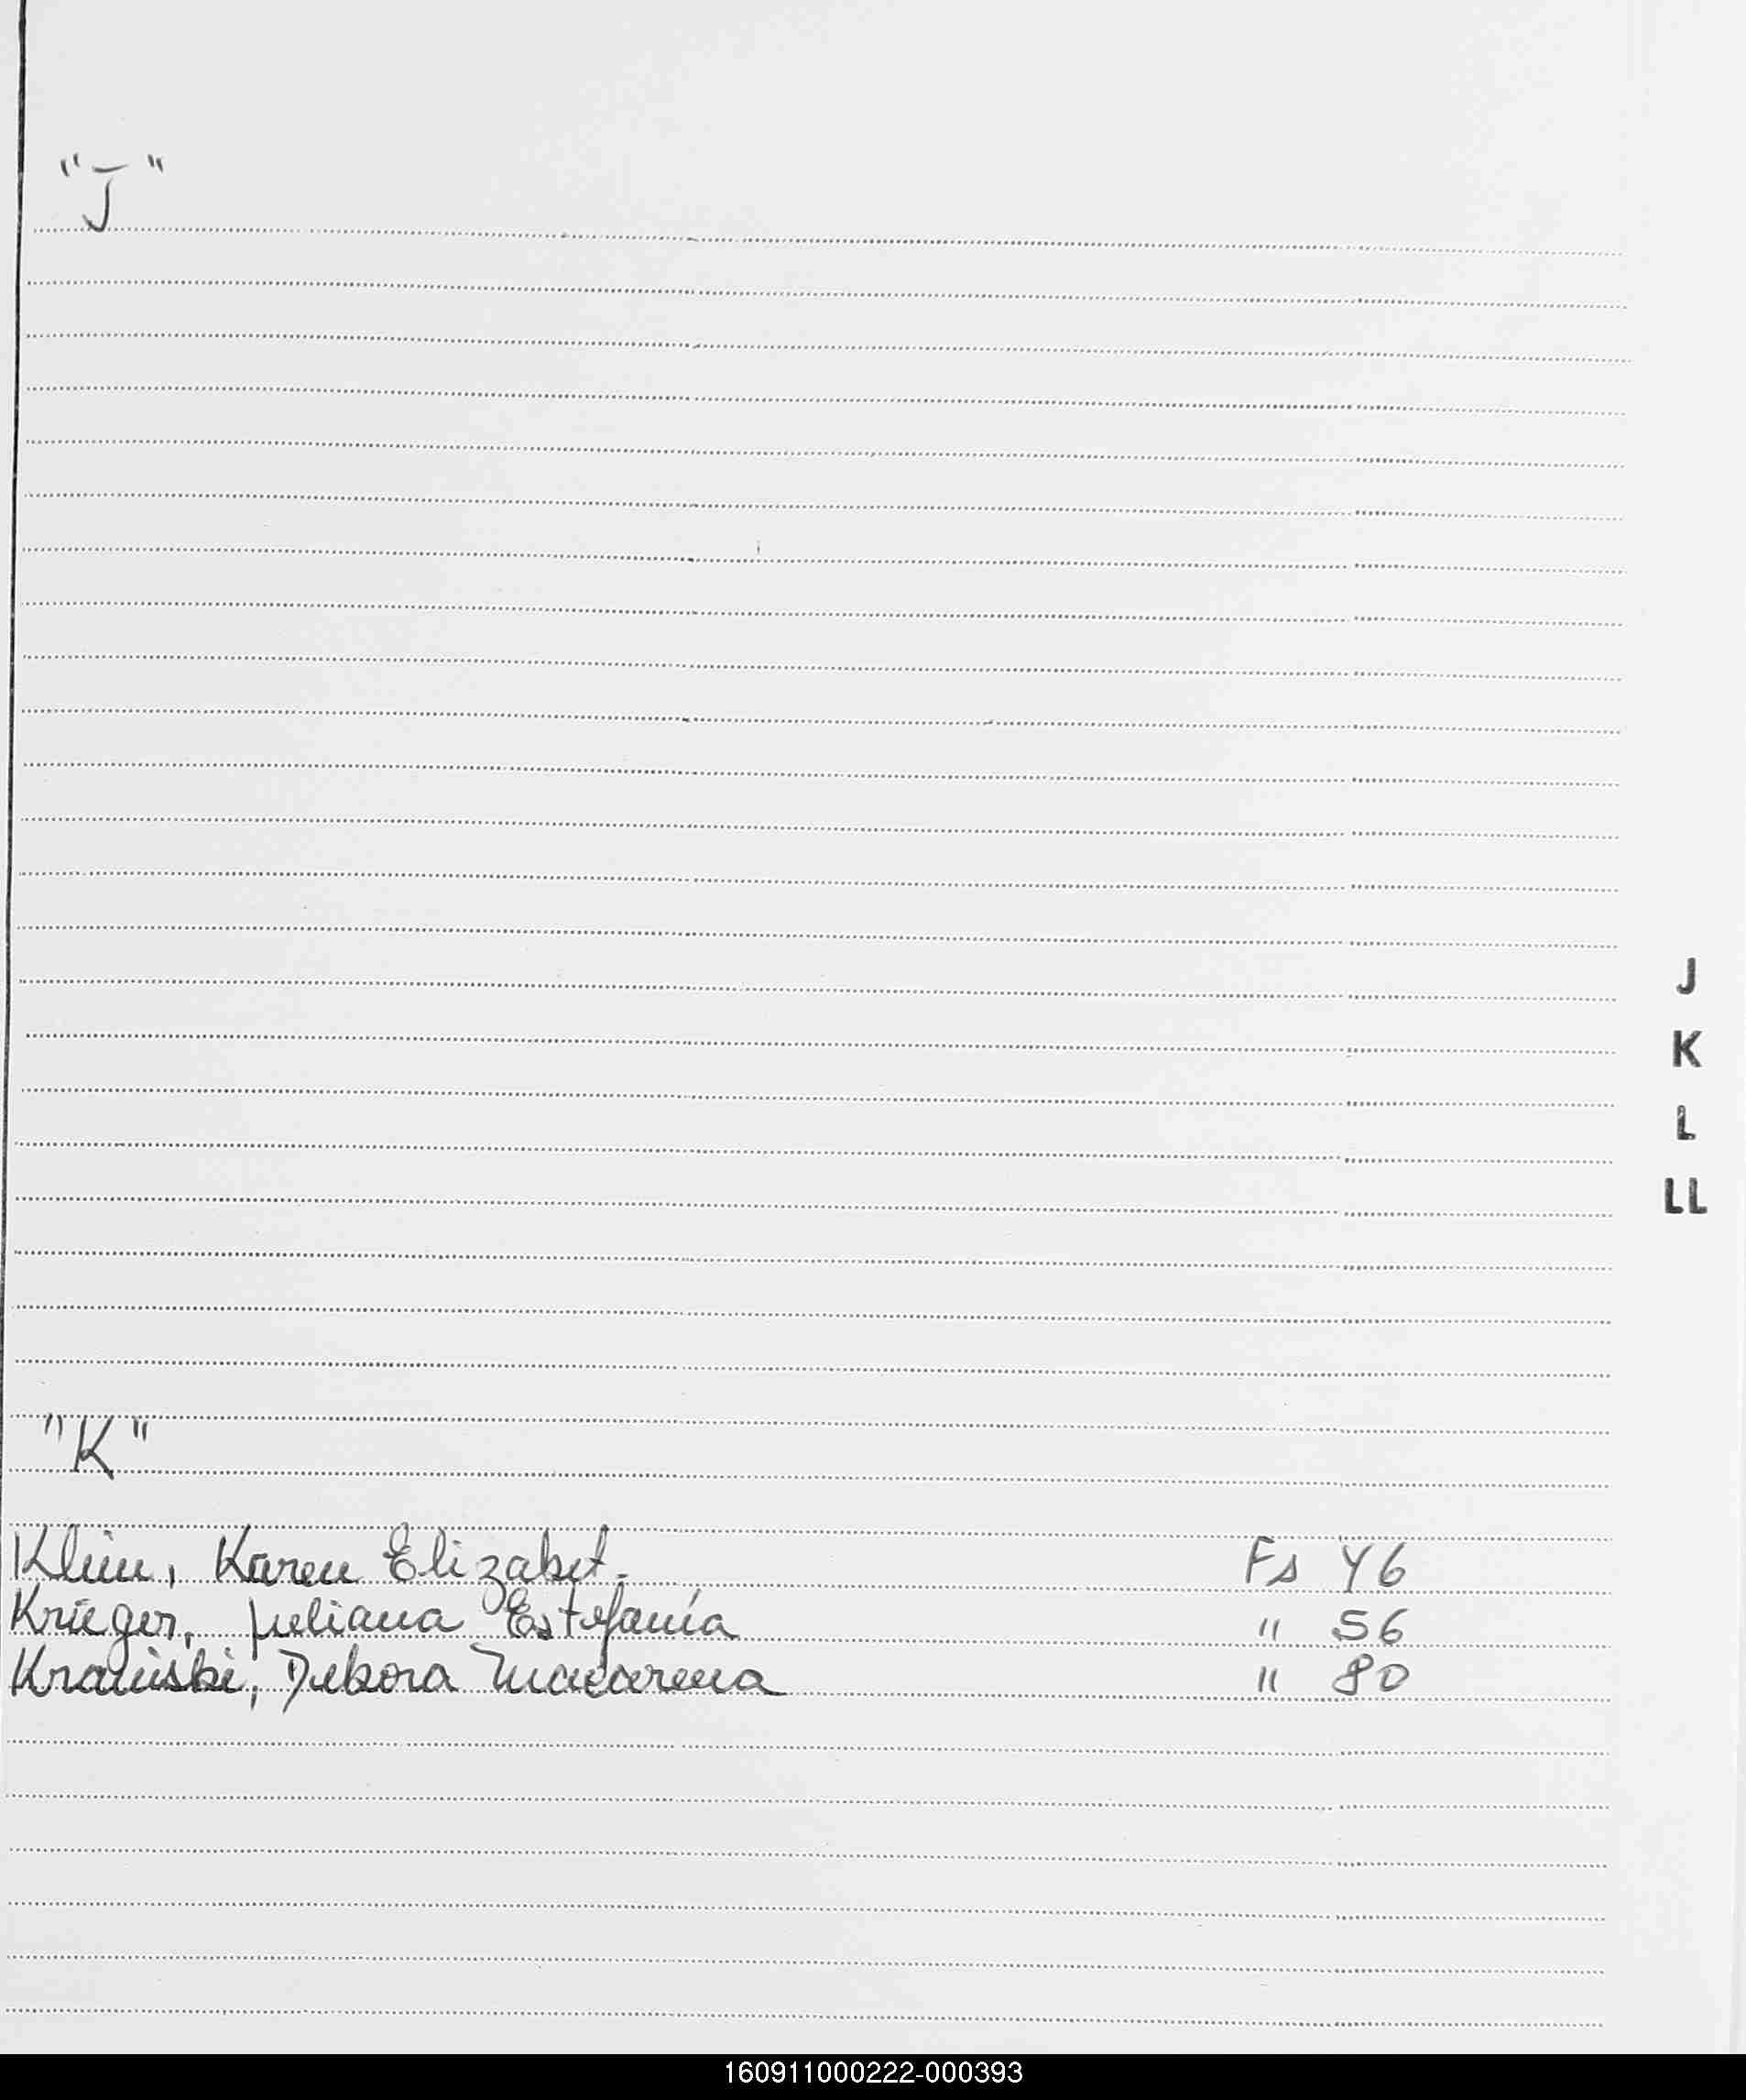 "J"
J
K
L
LL
"K"
Klein, Karen Elizabet. Fs 46
Krieger, Juliana Estefanía " 56
Debora Macarena " 80
160911000222-000393